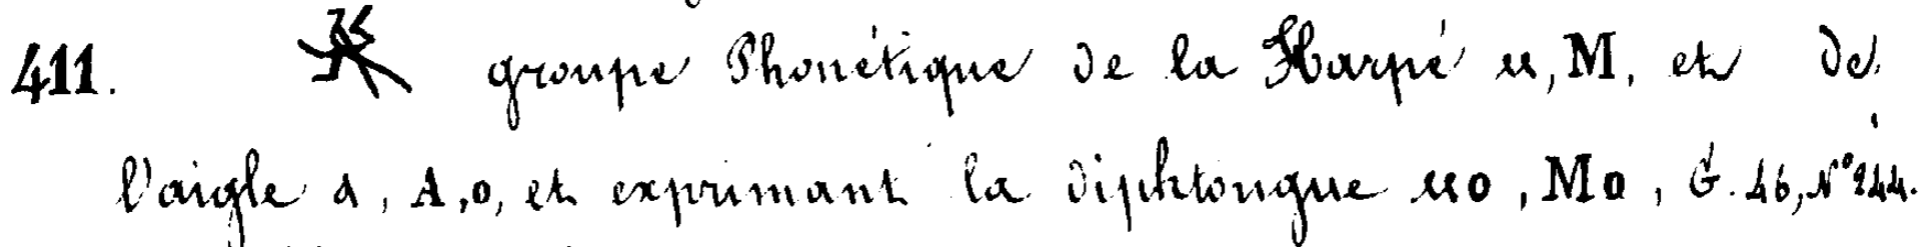 411. groupe Phonétique de la Harpé ⲙ, M, et de
l'aigle ⲁ, A, o, et exprimant la diphtongue ⲙo, Mo, G. 46, N° 244.